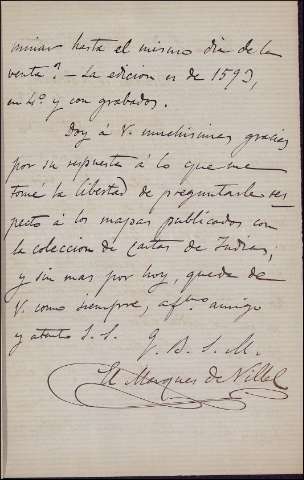 minar hasta el mismo dia de la
venta? — La edicion es de 1593,
en 4º y con grabados.
Doy á V. muchisimas gracias
por su respuesta á lo que me
tomé la libertad de preguntarle res
pecto á los mapas publicados con
la coleccion de Cartas de Indias;
y sin mas por hoy, queda de
V. como siempre, afmo. amigo
y atento S. S.
Q. B. S. M.
El Marques de Villel